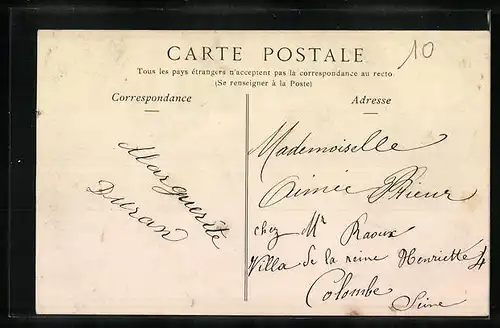 CARTE POSTALE
10
Tous les pays étrangers n'acceptent pas la correspondance au recto
(Se renseigner à la Poste)
Correspondance
Marguerite
Duran
Adresse
Mademoiselle
Aimée Prieur
chez Mr Raoux
Villa de la reine Henriette 4
Colombe
Seine